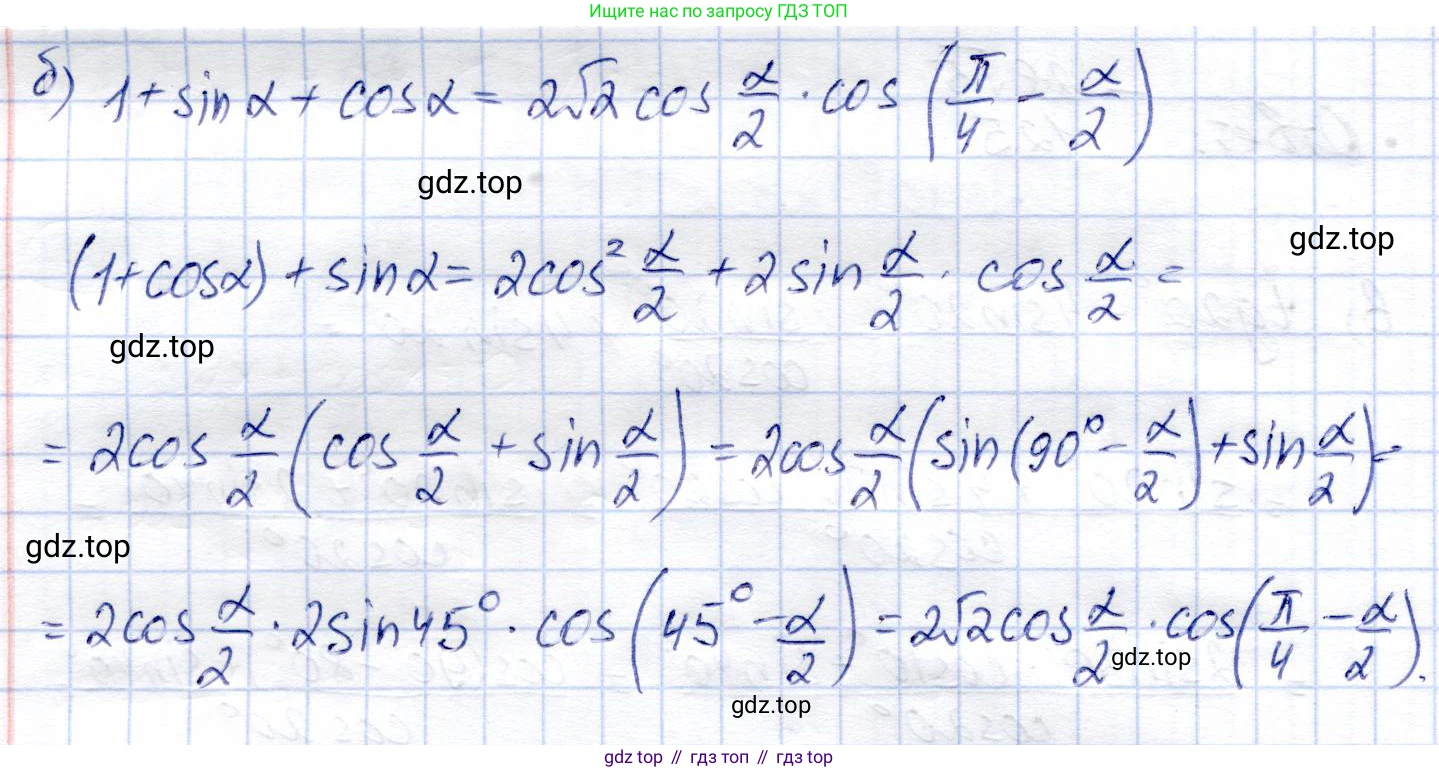 Ищите нас по запросу ГДЗ ТОП
б) 1 + sin α + cos α = 2√2 cos α/2 · cos (π/4 - α/2)
gdz.top
gdz.top
(1 + cos α) + sin α = 2cos² α/2 + 2 sin α/2 · cos α/2 =
gdz.top
= 2cos α/2 (cos α/2 + sin α/2) = 2cos α/2 (sin (90° - α/2) + sin α/2) =
gdz.top
= 2cos α/2 · 2sin 45° · cos (45° - α/2) = 2√2 cos α/2 · cos (π/4 - α/2).
gdz.top
gdz.top
gdz top // гдз топ // гдз top